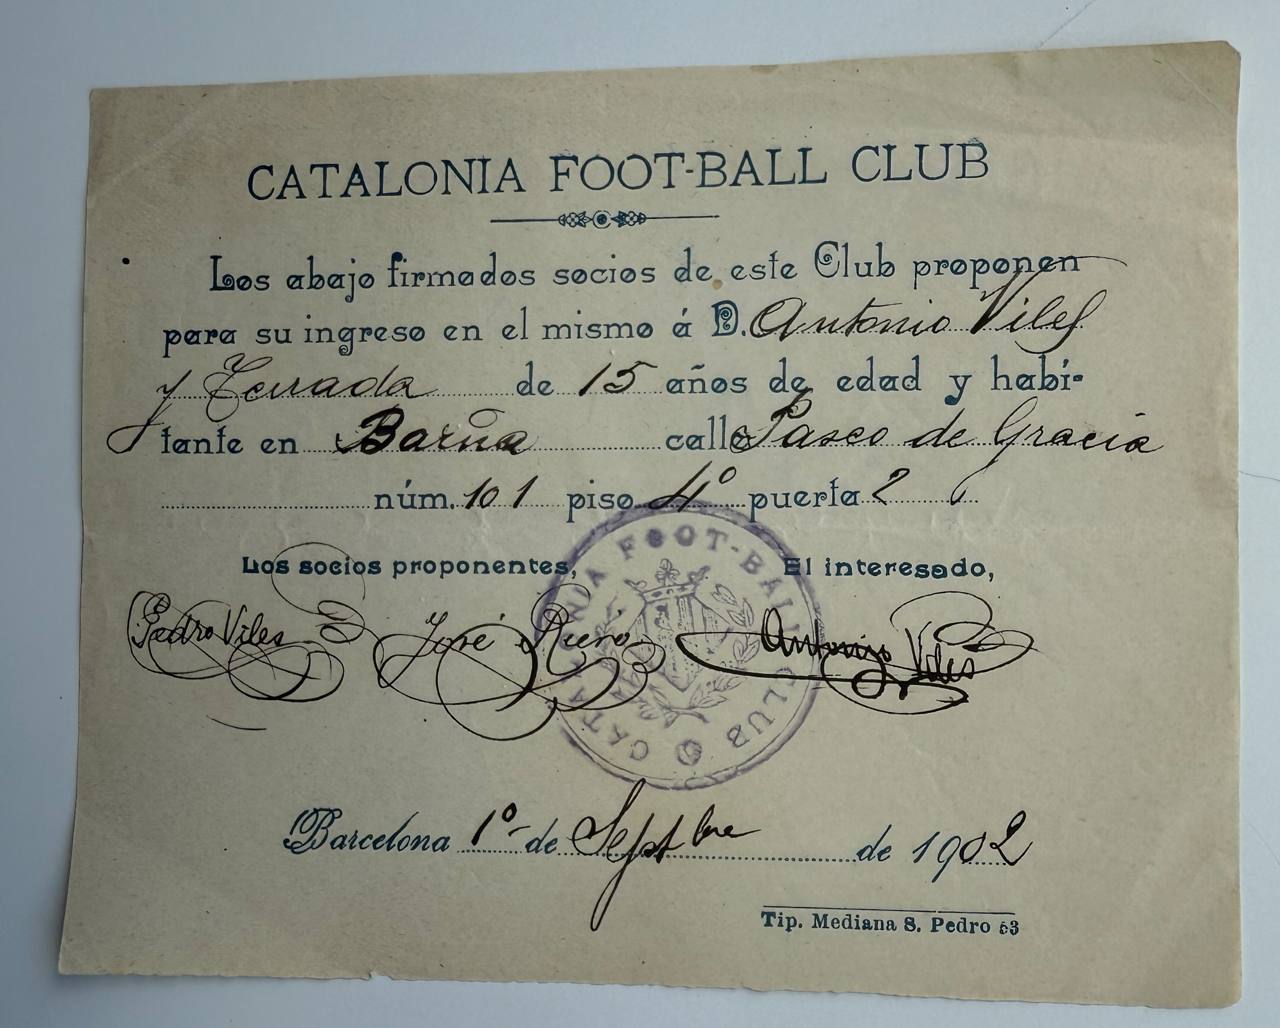 CATALONIA FOOT-BALL CLUB
Los abajo firmados socios de este Club proponen
para su ingreso en el mismo á D. Antonio Viles
y Terrada de 15 años de edad y habi-
tante en Barña calle Paseo de Gracia
núm. 101 piso 4º puerta 2
Los socios proponentes, El interesado,
Pedro Viles José Antonio Viles
CATALONIA FOOT-BALL CLUB
Barcelona 1º de Septbre de 1902
Tip. Mediana S. Pedro 63